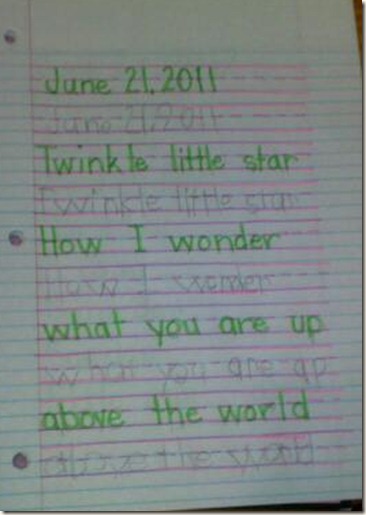 June 21, 2011
June 21, 2011
Twinkle little star
Twinkle little star
How I wonder
How I wonder
what you are up
what you are up
above the world
above the world